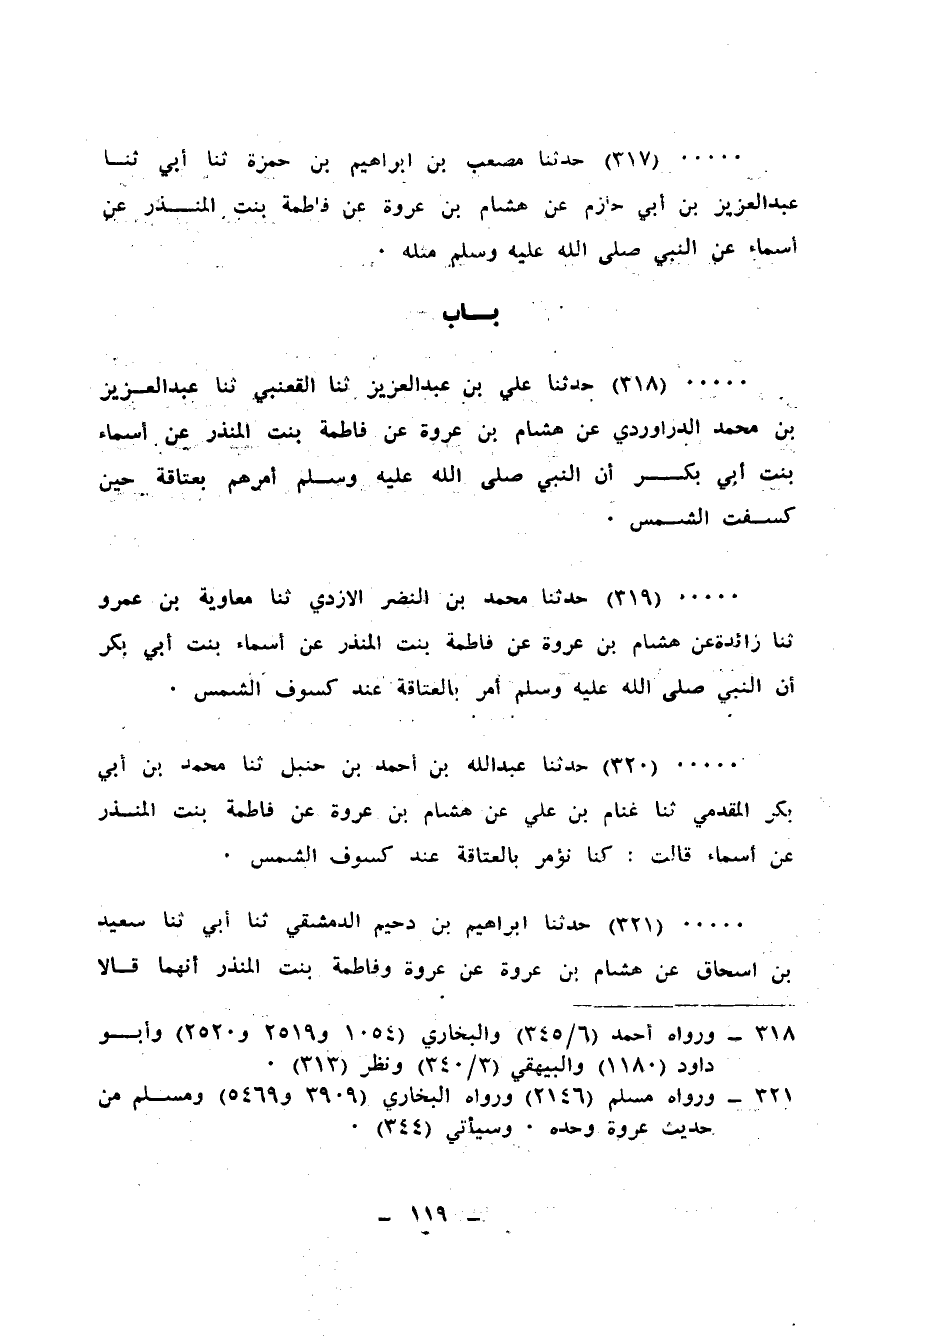 ٠٠٠٠٠ (٣١٧) حدثنا مصعب بن ابراهيم بن حمزة ثنا أبي ثنـــا
عبدالعزيز بن أبي حازم عن هشام بن عروة عن فاطمة بنت المنـــذر عن
أسماء عن النبي صلى الله عليه وسلم مثله ٠
بـــاب
٠٠٠٠٠ (٣١٨) حدثنا علي بن عبدالعزيز ثنا القعنبي ثنا عبدالعـــزيز
بن محمد الدراوردي عن هشام بن عروة عن فاطمة بنت المنذر عن أسماء
بنت أبي بكـــر أن النبي صلى الله عليه وســلم أمرهم بعتاقة حين
كســفت الشــمس ٠
٠٠٠٠٠ (٣١٩) حدثنا محمد بن النضر الازدي ثنا معاوية بن عمرو
ثنا زائدةعن هشام بن عروة عن فاطمة بنت المنذر عن أسماء بنت أبي بكر
أن النبي صلى الله عليه وسلم أمر بالعتاقة عند كسوف الشمس ٠
٠٠٠٠٠ (٣٢٠) حدثنا عبدالله بن أحمد بن حنبل ثنا محمد بن أبي
بكر المقدمي ثنا غنام بن علي عن هشام بن عروة عن فاطمة بنت المنـــذر
عن أسماء قالت : كنا نؤمر بالعتاقة عند كسوف الشمس ٠
٠٠٠٠٠ (٣٢١) حدثنا ابراهيم بن دحيم الدمشقي ثنا أبي ثنا سعيد
بن اسحاق عن هشام بن عروة عن عروة وفاطمة بنت المنذر أنهما قــالا
٣١٨ ــ ورواه أحمد (٣٤٥/٦) والبخاري (١٠٥٤ و٢٥١٩ و٢٥٢٠) وأبـــو
داود (١١٨٠) والبيهقي (٣٤٠/٣) ونظر (٣١٣) ٠
٣٢١ ــ ورواه مسلم (٢١٤٦) ورواه البخاري (٣٩٠٩ و٥٤٦٩) ومســلم من
حديث عروة وحده ٠ وسيأتي (٣٤٤) ٠
ــ ١١٩ ــ